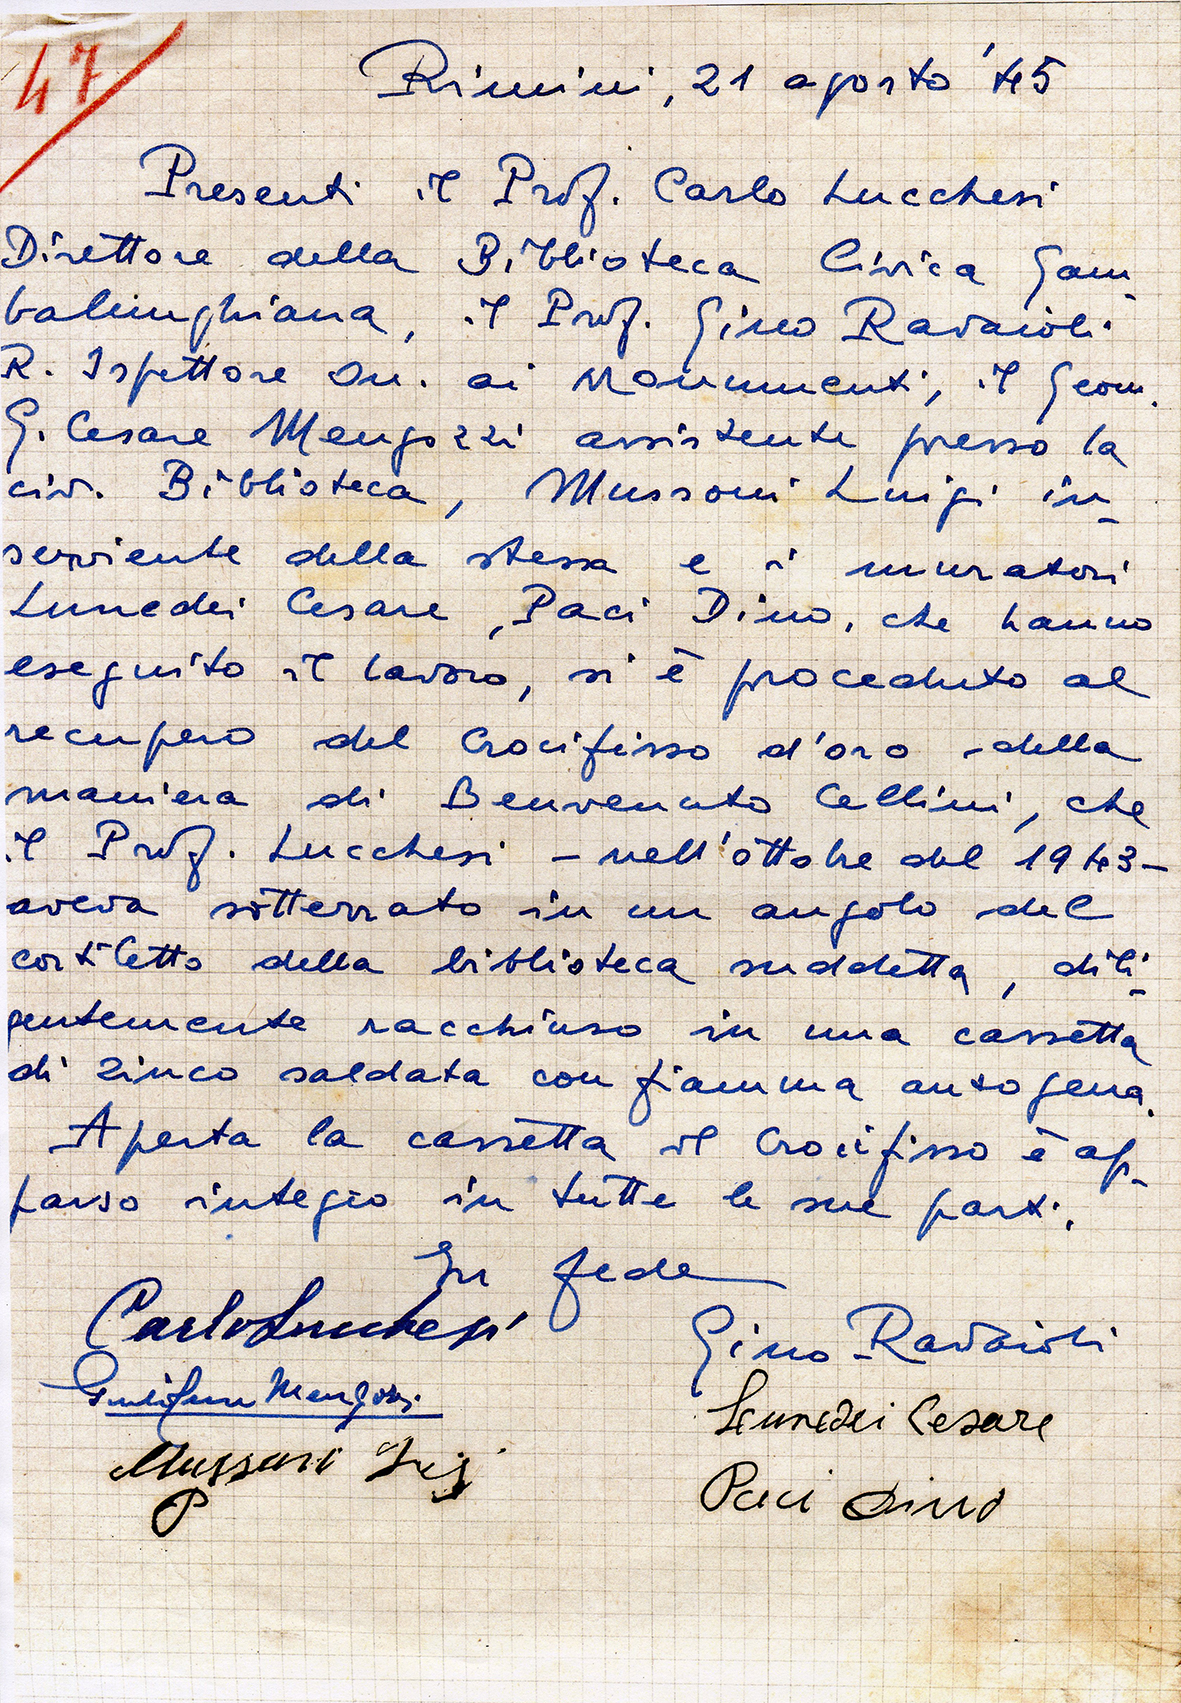 47
Rimini, 21 agosto '45
Presenti il Prof. Carlo Lucchesi
Direttore della Biblioteca Civica Gam-
balunghiana, il Prof. Gino Ravaioli
R. Ispettore On. ai Monumenti, il Geom.
G. Cesare Mengozzi assistente presso la
civ. Biblioteca, Mussoni Luigi in-
serviente della stessa e i muratori
Lunedei Cesare, Paci Dino, che hanno
eseguito il lavoro, si è proceduto al
recupero del Crocifisso d'oro - della
maniera di Benvenuto Cellini, che
il Prof. Lucchesi - nell'ottobre del 1943 -
aveva sotterrato in un angolo del
cortiletto della biblioteca suddetta, dili-
gentemente racchiuso in una cassetta
di zinco saldata con fiamma autogena.
Aperta la cassetta il Crocifisso è ap-
parso integro in tutte le sue parti.
In fede
Carlo Lucchesi
Gino Ravaioli
Mengozzi
Lunedei Cesare
Mussoni Luigi
Paci Dino
P